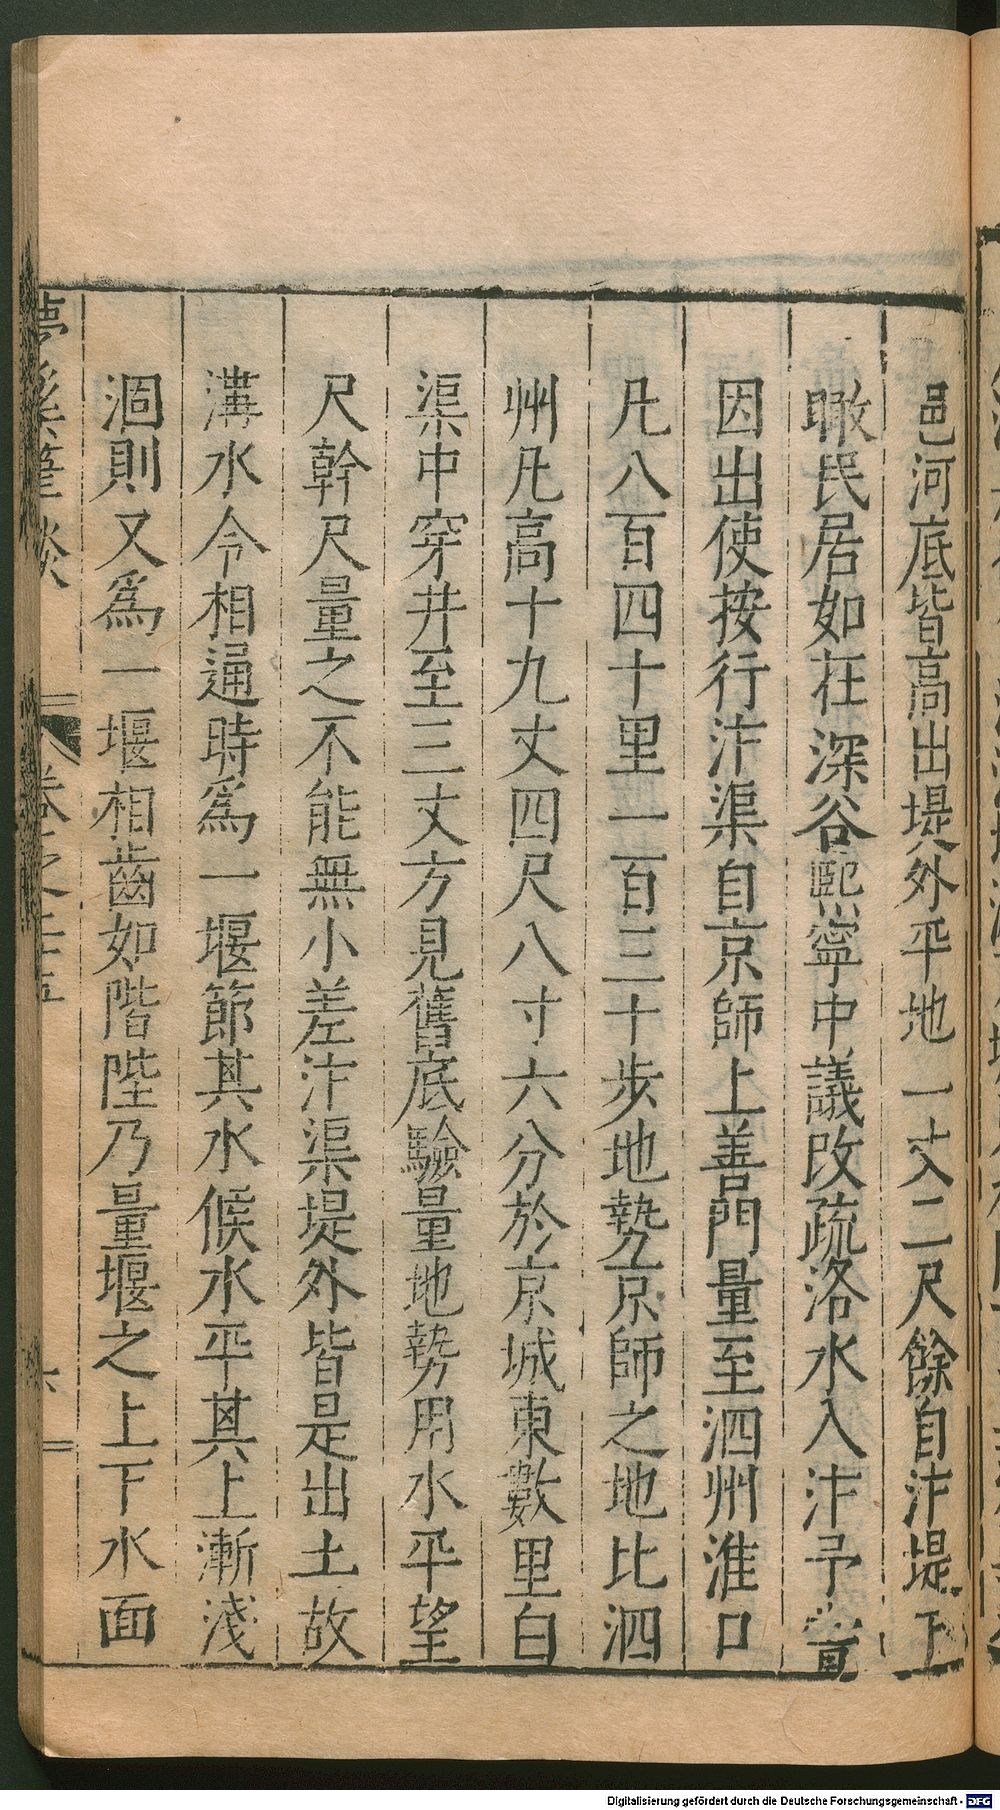 邑河底皆高出堤外平地一丈二尺餘自汴堤下
瞰民居如在深谷熙寧中議改疏洛水入汴予嘗
因出使按行汴渠自京師上善門量至泗州淮口
凡八百四十里一百三十步地勢京師之地比泗
州凡高十九丈四尺八寸六分於京城東數里白
渠中穿井至三丈方見舊底驗量地勢用水平望
尺幹尺量之不能無小差汴渠堤外皆是出土故
溝水令相通時為一堰節其水候水平其上漸淺
涸則又為一堰相齒如階陛乃量堰之上下水面
夢溪筆談
卷之二十五
六
Digitalisierung gefördert durch die Deutsche Forschungsgemeinschaft - DFG